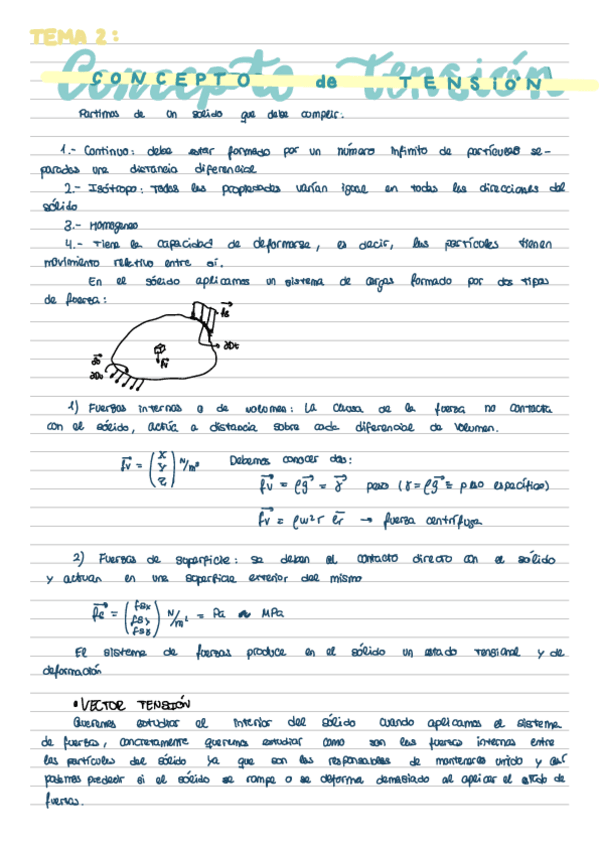 TEMA 2:
CONCEPTO de TENSIÓN
Concepto Tensión
Partimos de un sólido que debe cumplir:
1.- Continuo: debe estar formado por un número infinito de partículas se-
paradas una distancia diferencial
2.- Isótropo: Todas las propiedades varían igual en todas las direcciones del
sólido
3.- Homogeneo
4.- Tiene la capacidad de deformarse, es decir, las partículas tienen
movimiento relativo entre sí.
En el sólido aplicamos un sistema de cargas formado por dos tipos
de fuerza:
1) Fuerzas internas o de volumen: La causa de la fuerza no contacta
con el sólido, actúa a distancia sobre cada diferencial de volumen.
fv = (X Y Z) N/m³ Debemos conocer dos:
fv = ρg = γ peso (γ = ρg ≡ peso específico)
fv = ρw²r er → fuerza centrífuga
2) Fuerzas de superficie: se deben al contacto directo con el sólido
y actuan en una superficie exterior del mismo
fs = (fsx fsy fsz) N/m² = Pa ~ MPa
El sistema de fuerzas produce en el sólido un estado tensional y de
deformación
• VECTOR TENSIÓN
Queremos estudiar el interior del sólido cuando aplicamos el sistema
de fuerzas, concretamente queremos estudiar como son las fuerzas internas entre
las partículas del sólido ya que son las responsables de mantenerlo unido y así
podemos predecir si el sólido se rompe o se deforma demasiado al aplicar el estado de
fuerzas.